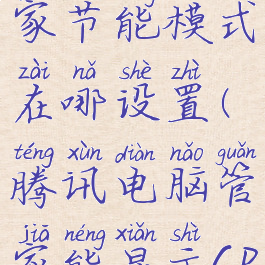 家节能模式
zài nǎ shè zhì
在哪设置(
téng xùn diàn nǎo guǎn
腾讯电脑管
jiā néng xiǎn shì
家能显示CP